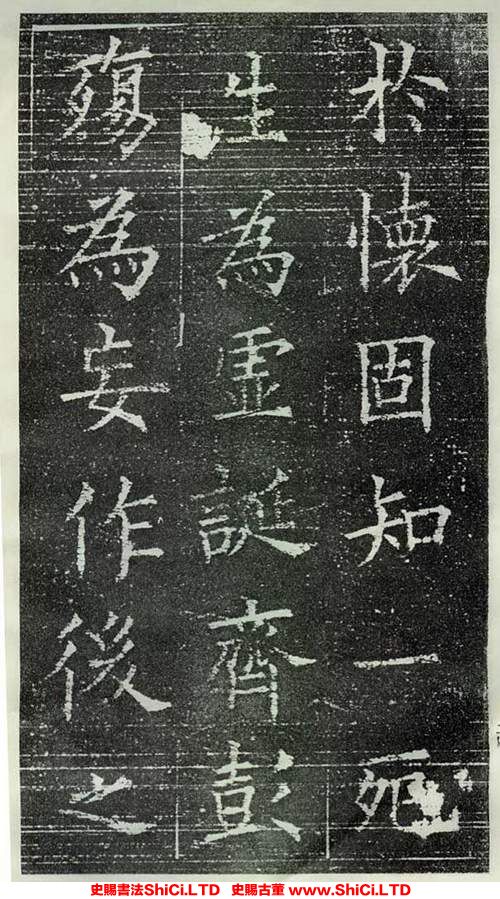 於懷固知一死
生為虛誕齊彭
殤為妄作後之
史賜書法ShiCi.LTD 史賜古董 www.ShiCi.LTD